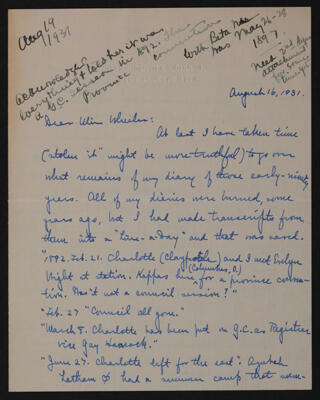 Aug 19
1931
acknowledged
everything & told her it was
a G.C. session in 1892. The
Province convention
with Beta Nu
was May 26-28
1897.
Need 2nd
attachment
for some
August 16, 1931.
Dear Miss Wheeler:
At last I have taken time
("stolen it" might be more truthful) to go over
what remains of my diary of those early-ninety
years. All of my diaries were burned, some
years ago, but I had made transcripts from
them into a "Line-a-Day" and that was saved.
"1892. Feb. 21. Charlotte (Claypole) and I met Evelyn
(Columbus, O.)
Wight at station. Kappas here for a province conven-
tion. Was it not a council session?"
"Feb. 27 "Council all gone."
"March 8. Charlotte has been put on G.C. as Registrar
vice Gay Hancock."
"June 27. Charlotte left for the east." Azubah
Latham & I had a summer camp that